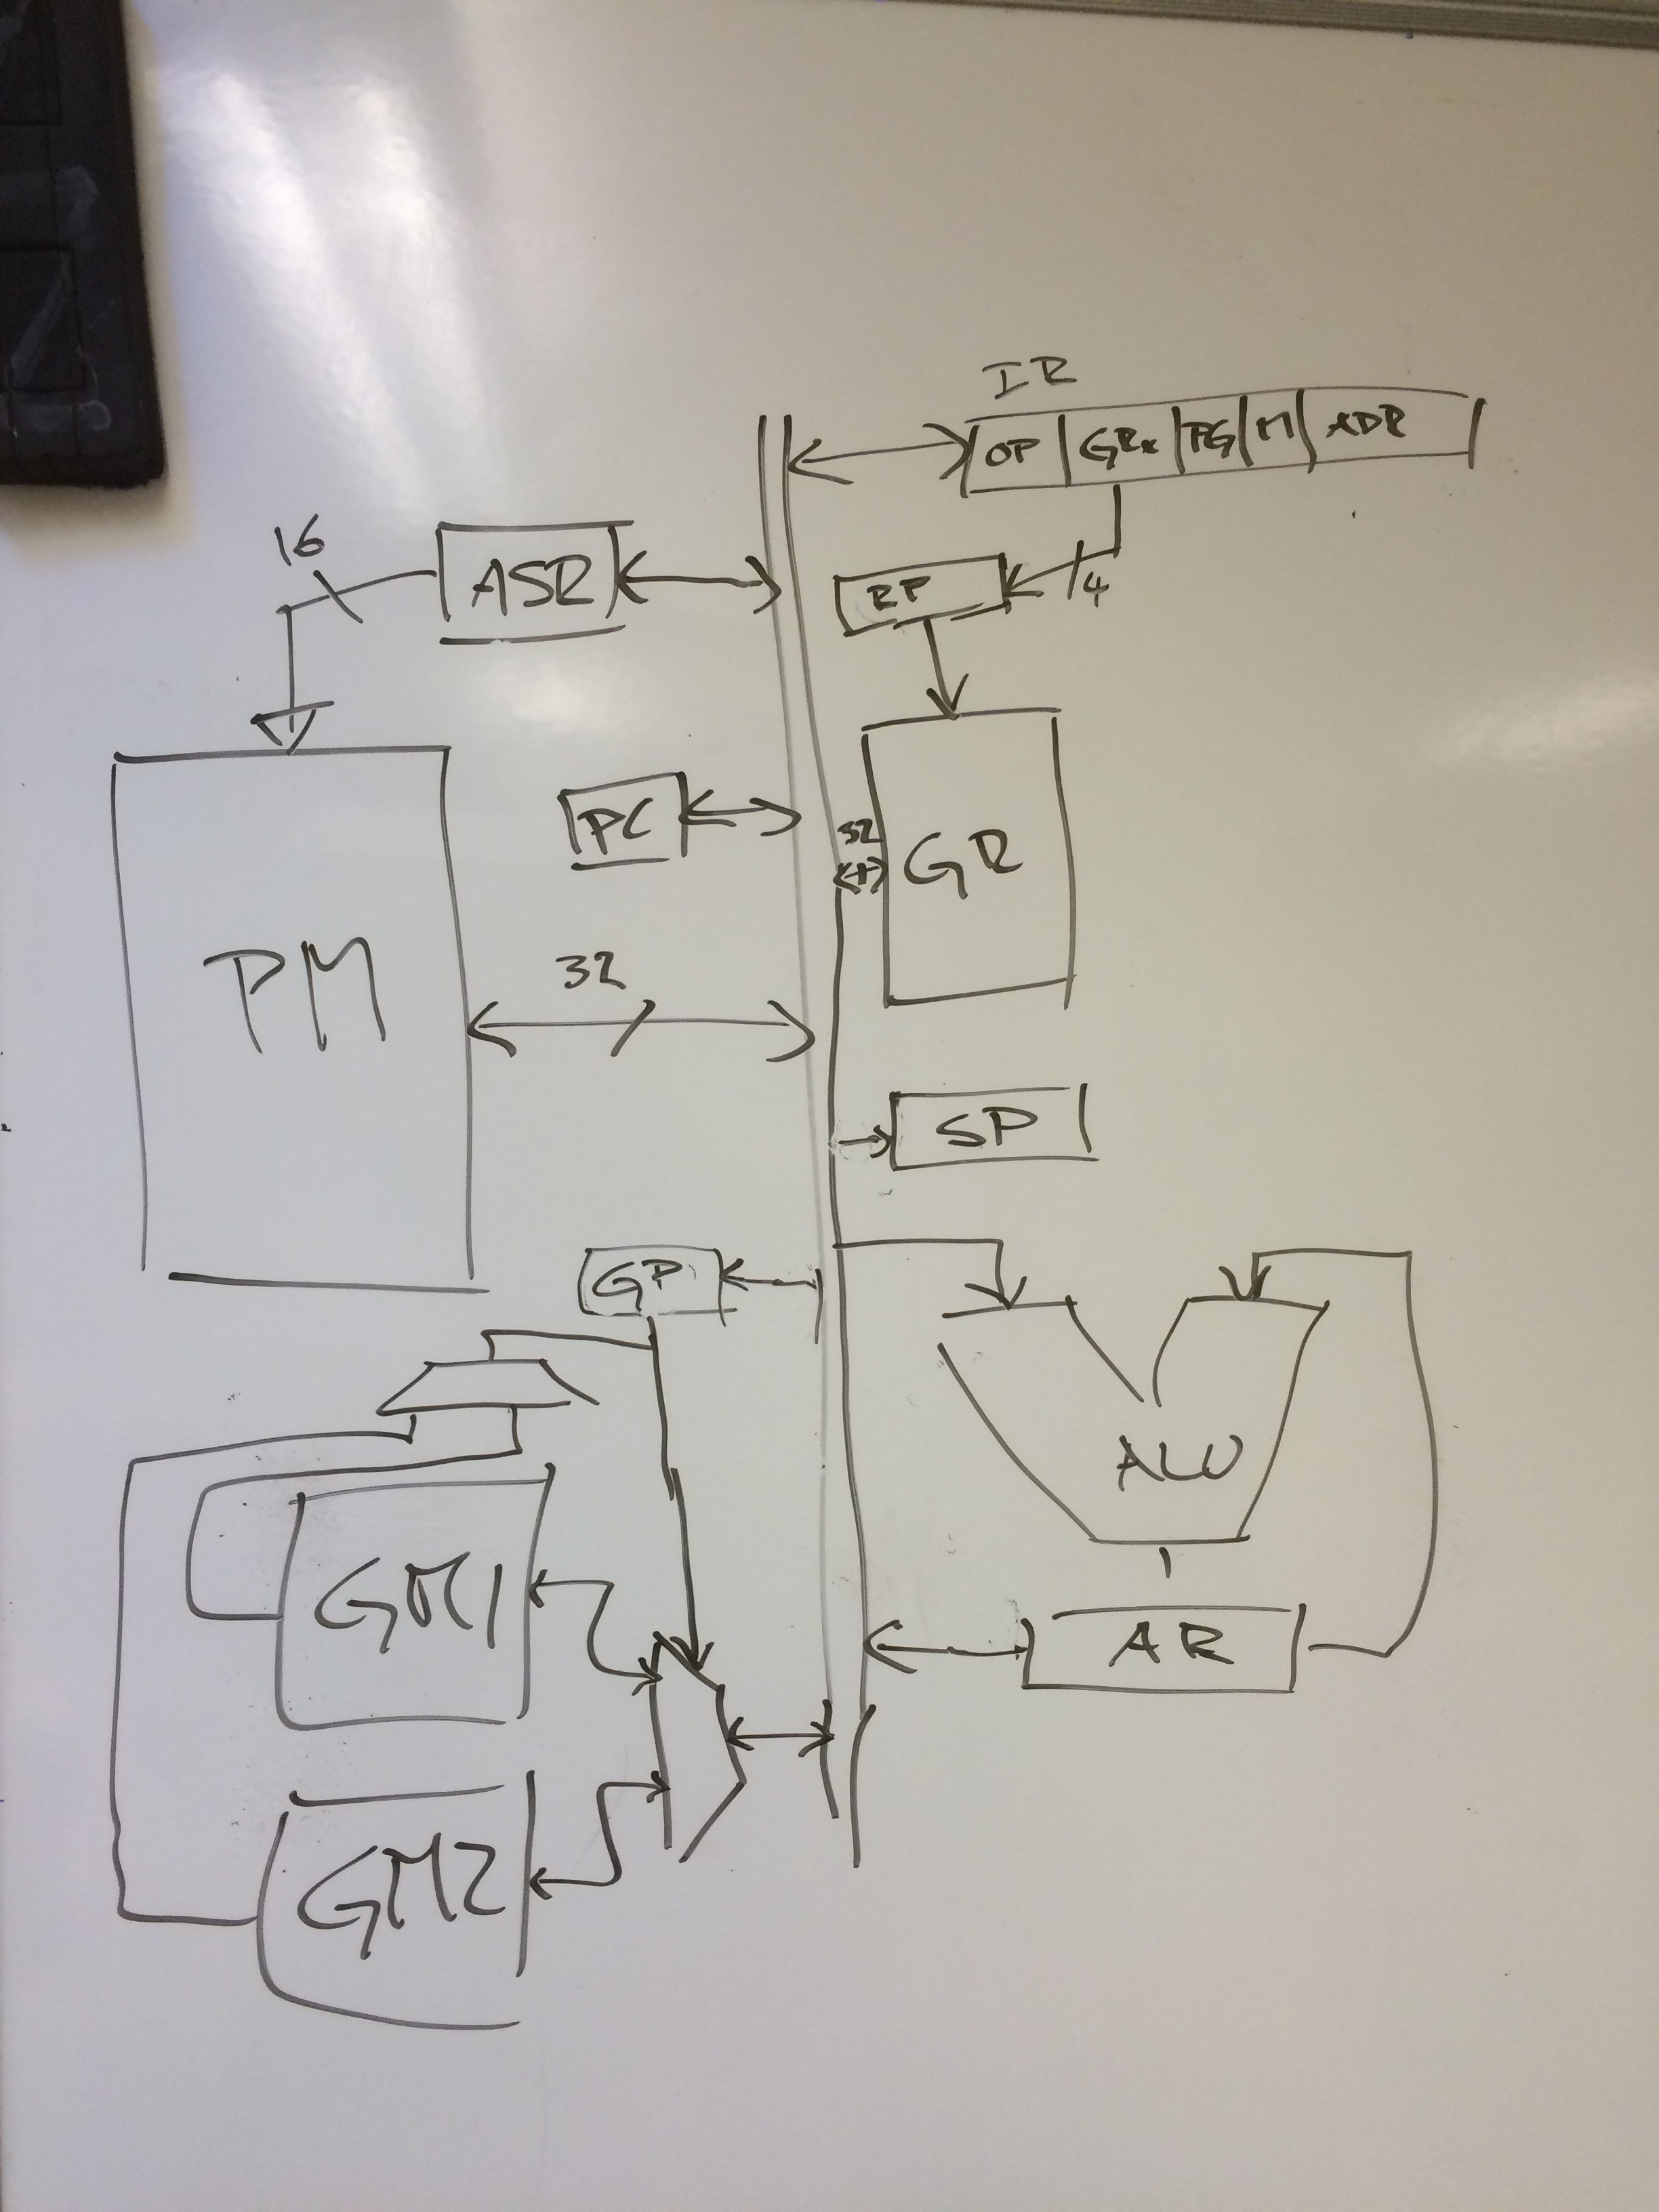 IR
OP GRx PG M ADR
16
ASR
RP
4
PC
32
GR
PM
32
SP
GP
ALU
GM1
AR
GM2